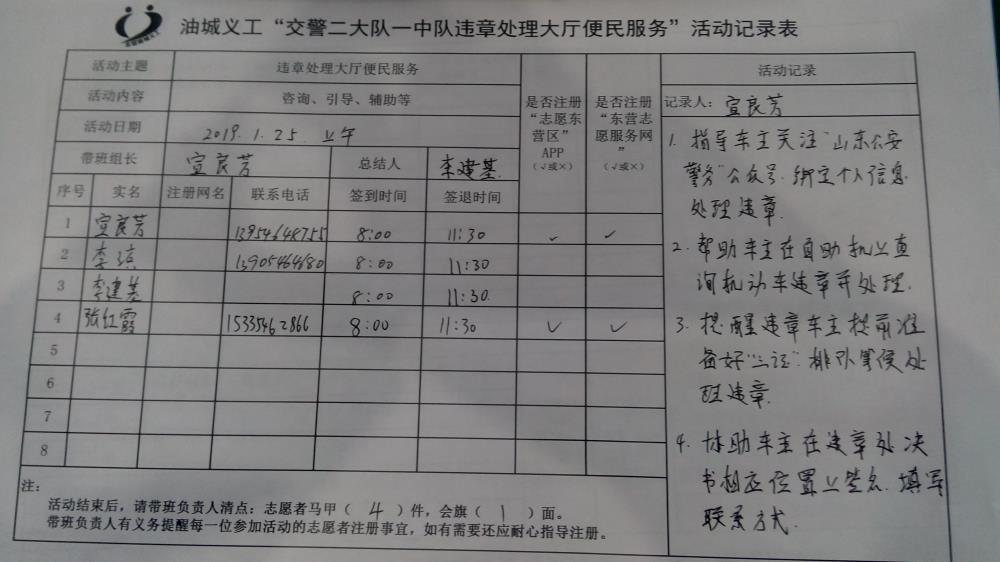 油城义工“交警二大队一中队违章处理大厅便民服务”活动记录表
活动主题 违章处理大厅便民服务
活动内容 咨询、引导、辅助等
活动日期 2019.1.25.上午
带班组长 宣良芳 总结人 李建基
序号 实名 注册网名 联系电话 签到时间 签退时间
是否注册
“志愿东
营区”
APP
(√或×)
是否注册
“东营志
愿服务网
”
(√或×)
1 宣良芳 13954648755 8:00 11:30 √ √
2 李 13905464680 8:00 11:30
3 李建基 8:00 11:30
4 张红霞 15335462866 8:00 11:30 √ √
5
6
7
8
注:
活动结束后，请带班负责人清点：志愿者马甲（ 4 ）件，会旗（ 1 ）面。
带班负责人有义务提醒每一位参加活动的志愿者注册事宜，如有需要还应耐心指导注册。
活动记录
记录人: 宣良芳
1. 指导车主关注“山东公安
警务”公众号.绑定个人信息
处理违章.
2. 帮助车主在自助机上查
询机动车违章并处理.
3. 提醒违章车主提前准
备好“三证”.排队等侯处
理违章.
4. 协助车主在违章处决
书相应位置上签名.填写
联系方式.